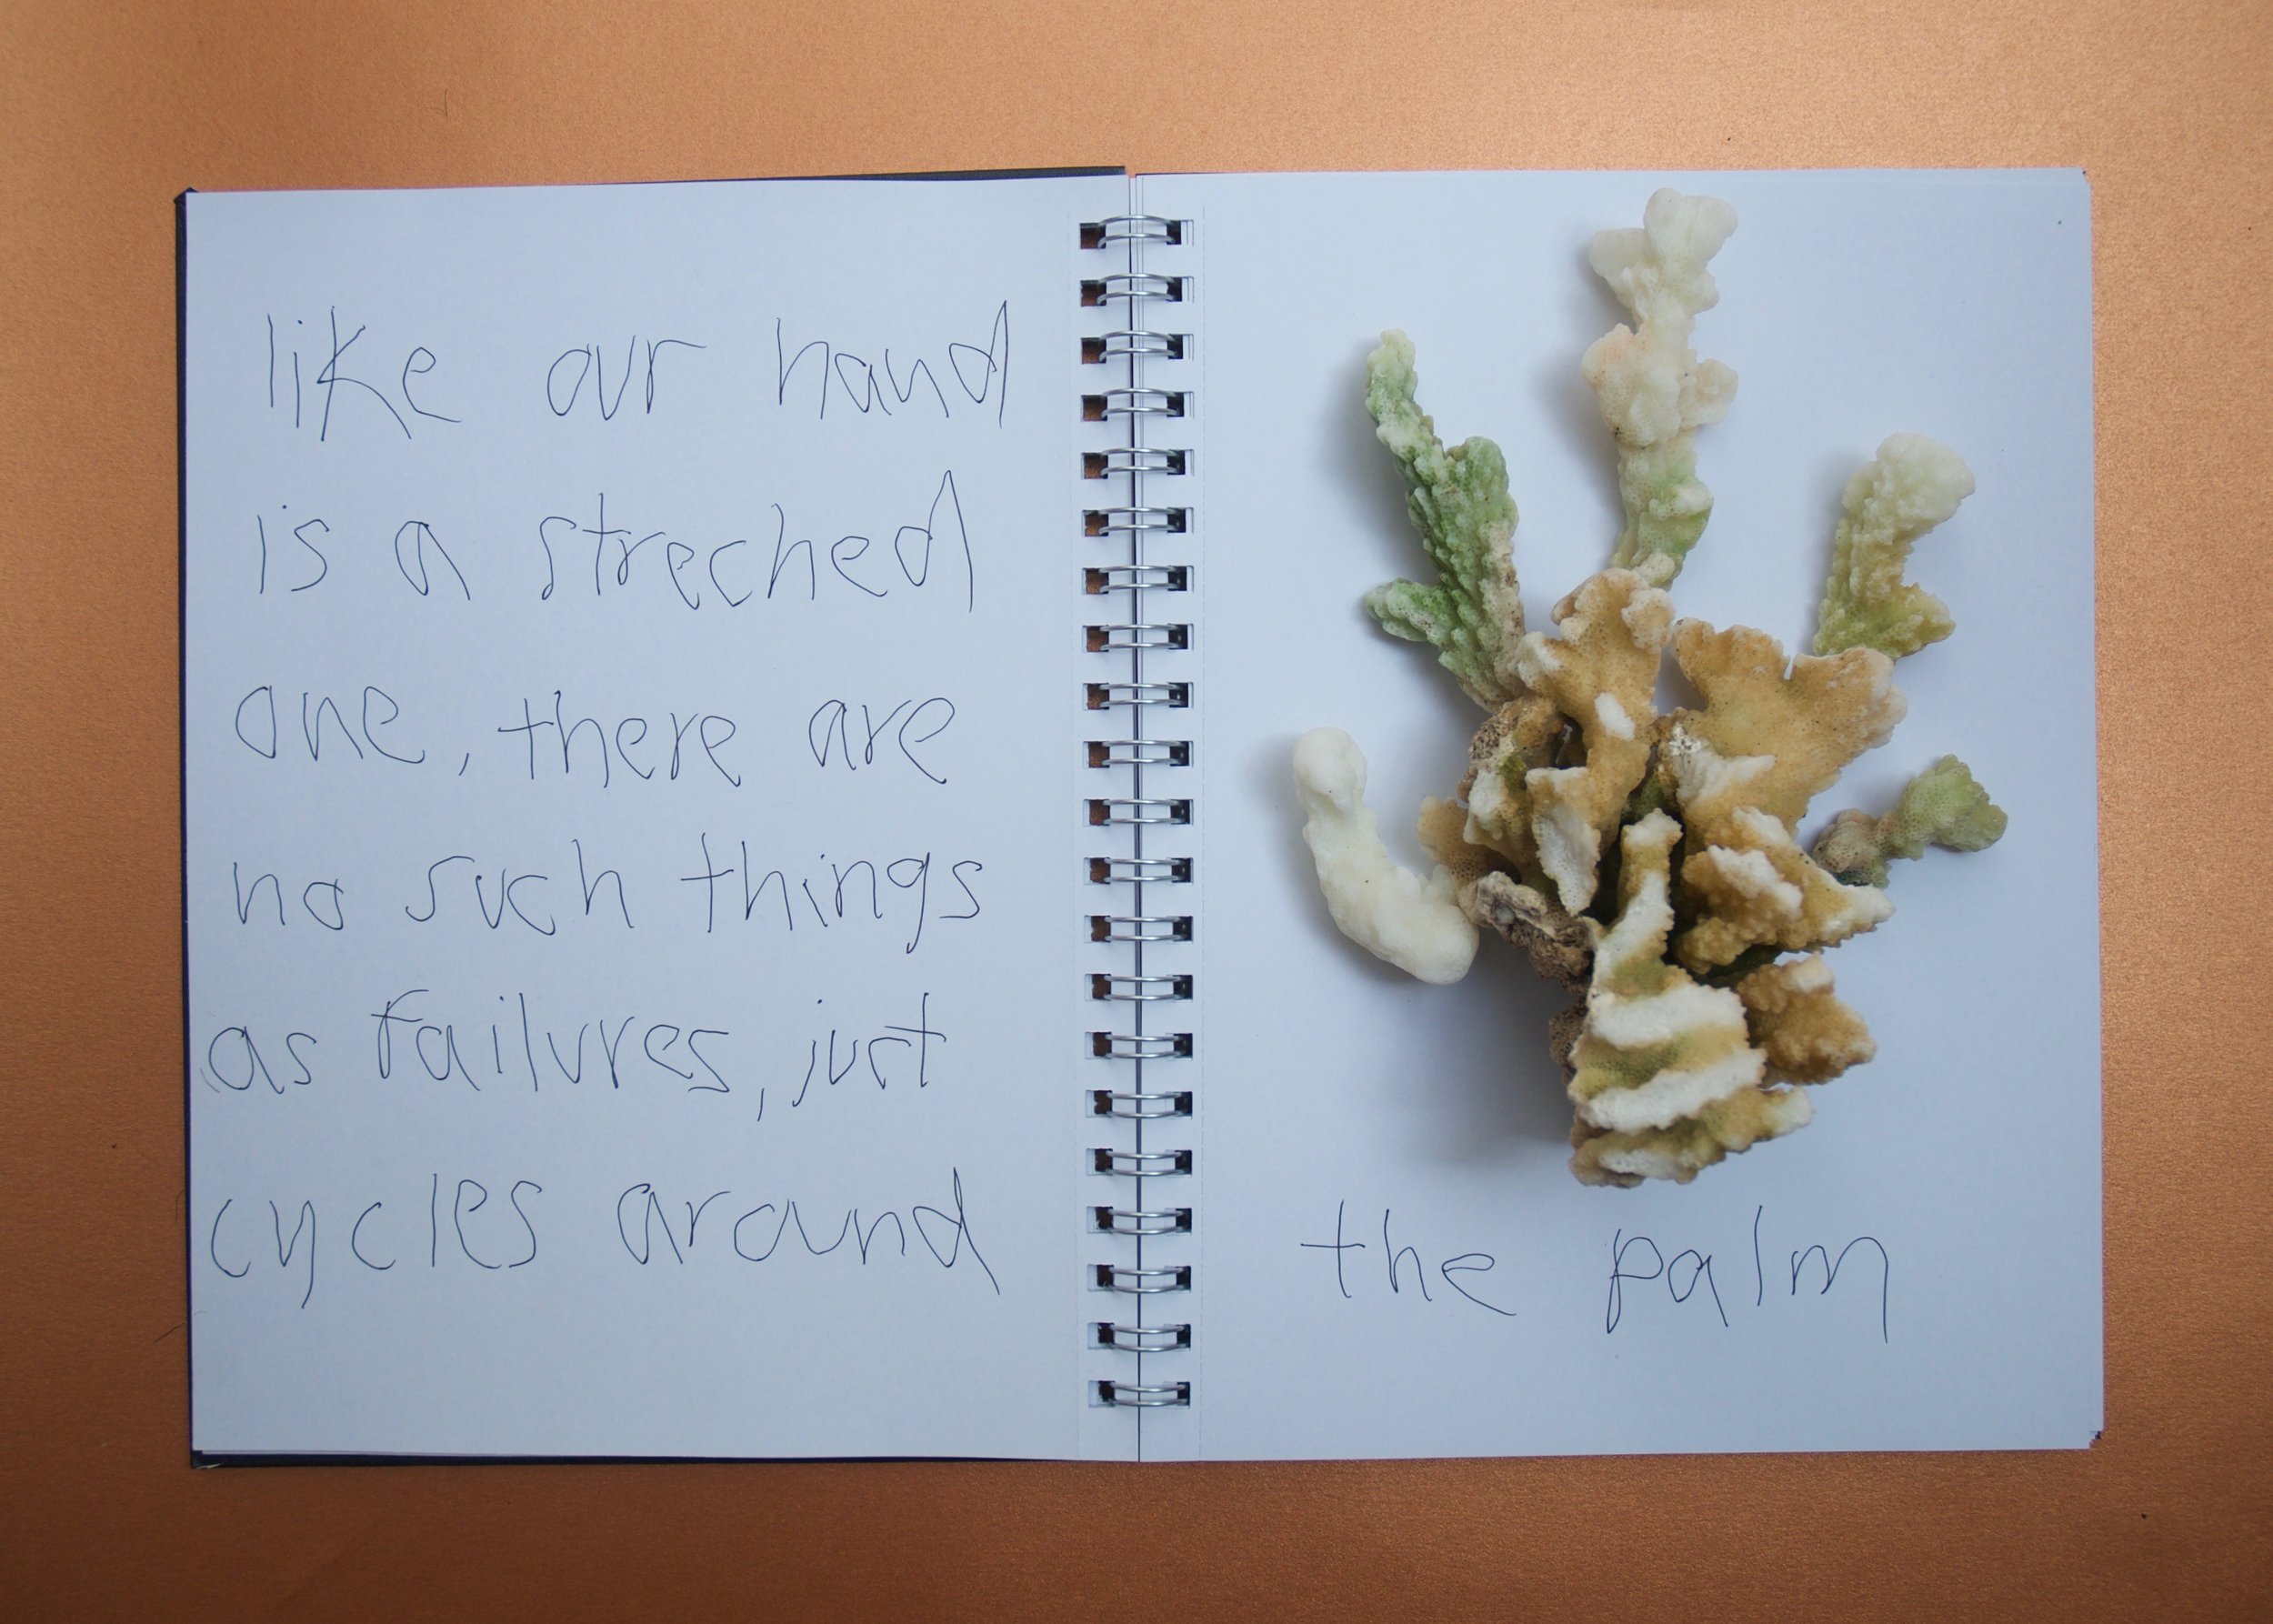 like our hand
is a streched
one, there are
no such things
as failures, just
cycles around
the palm